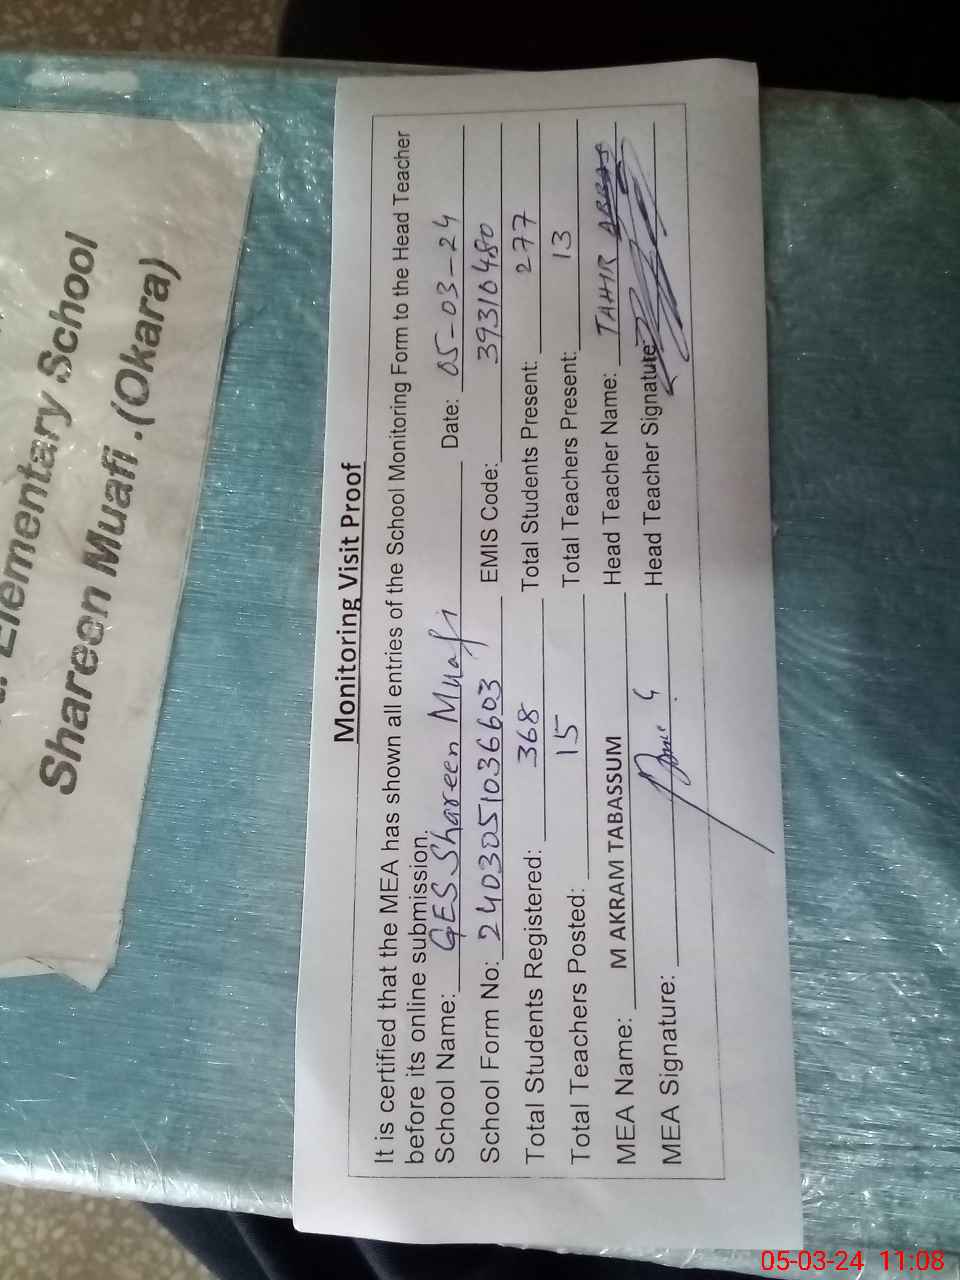 Elementary School
Shareen Muafi .(Okara)
Monitoring Visit Proof
It is certified that the MEA has shown all entries of the School Monitoring Form to the Head Teacher
before its online submission.
School Name: GES Shareen Muafi Date: 05-03-24
School Form No: 2403051036603 EMIS Code: 39310480
Total Students Registered: 368 Total Students Present: 277
Total Teachers Posted: 15 Total Teachers Present: 13
MEA Name: M AKRAM TABASSUM Head Teacher Name: TAHIR ABBAS
MEA Signature: Head Teacher Signature:
05-03-24 11:08